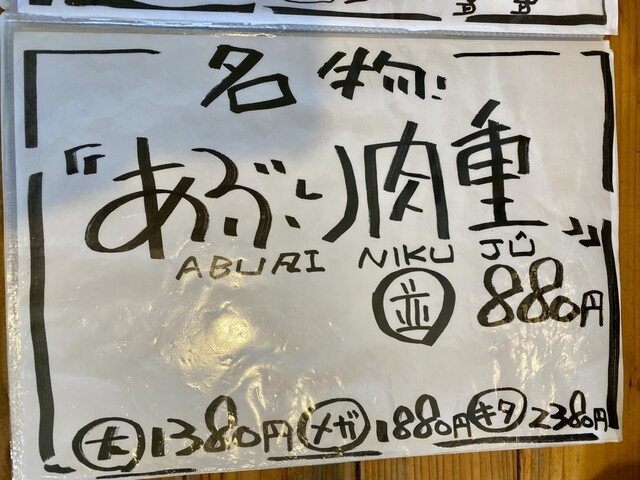 名物
"あぶり肉重"
ABURI NIKU JÛ
並 880円
大 1380円 メガ 1880円 キタ 2380円